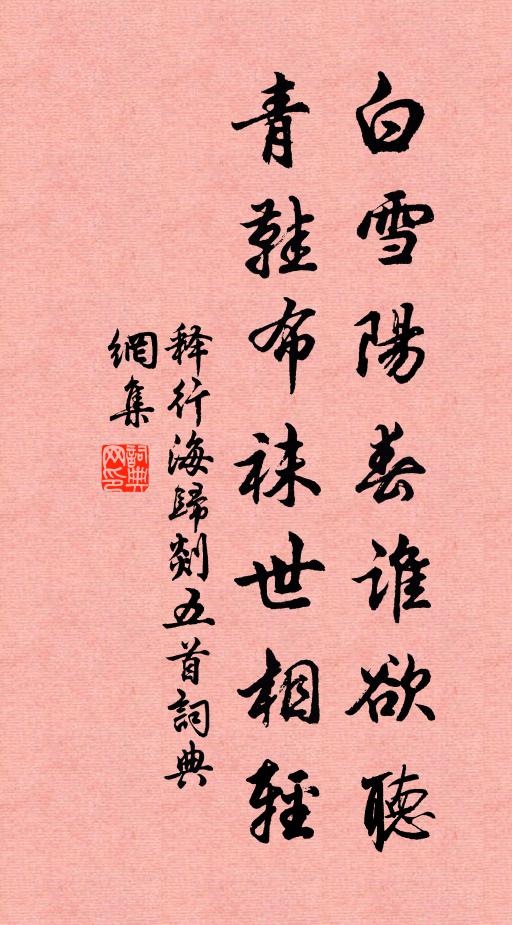 白雪陽春誰欲聽
青鞋布袜世相輕
释行海歸剡五首詞典
網集
詞典網印